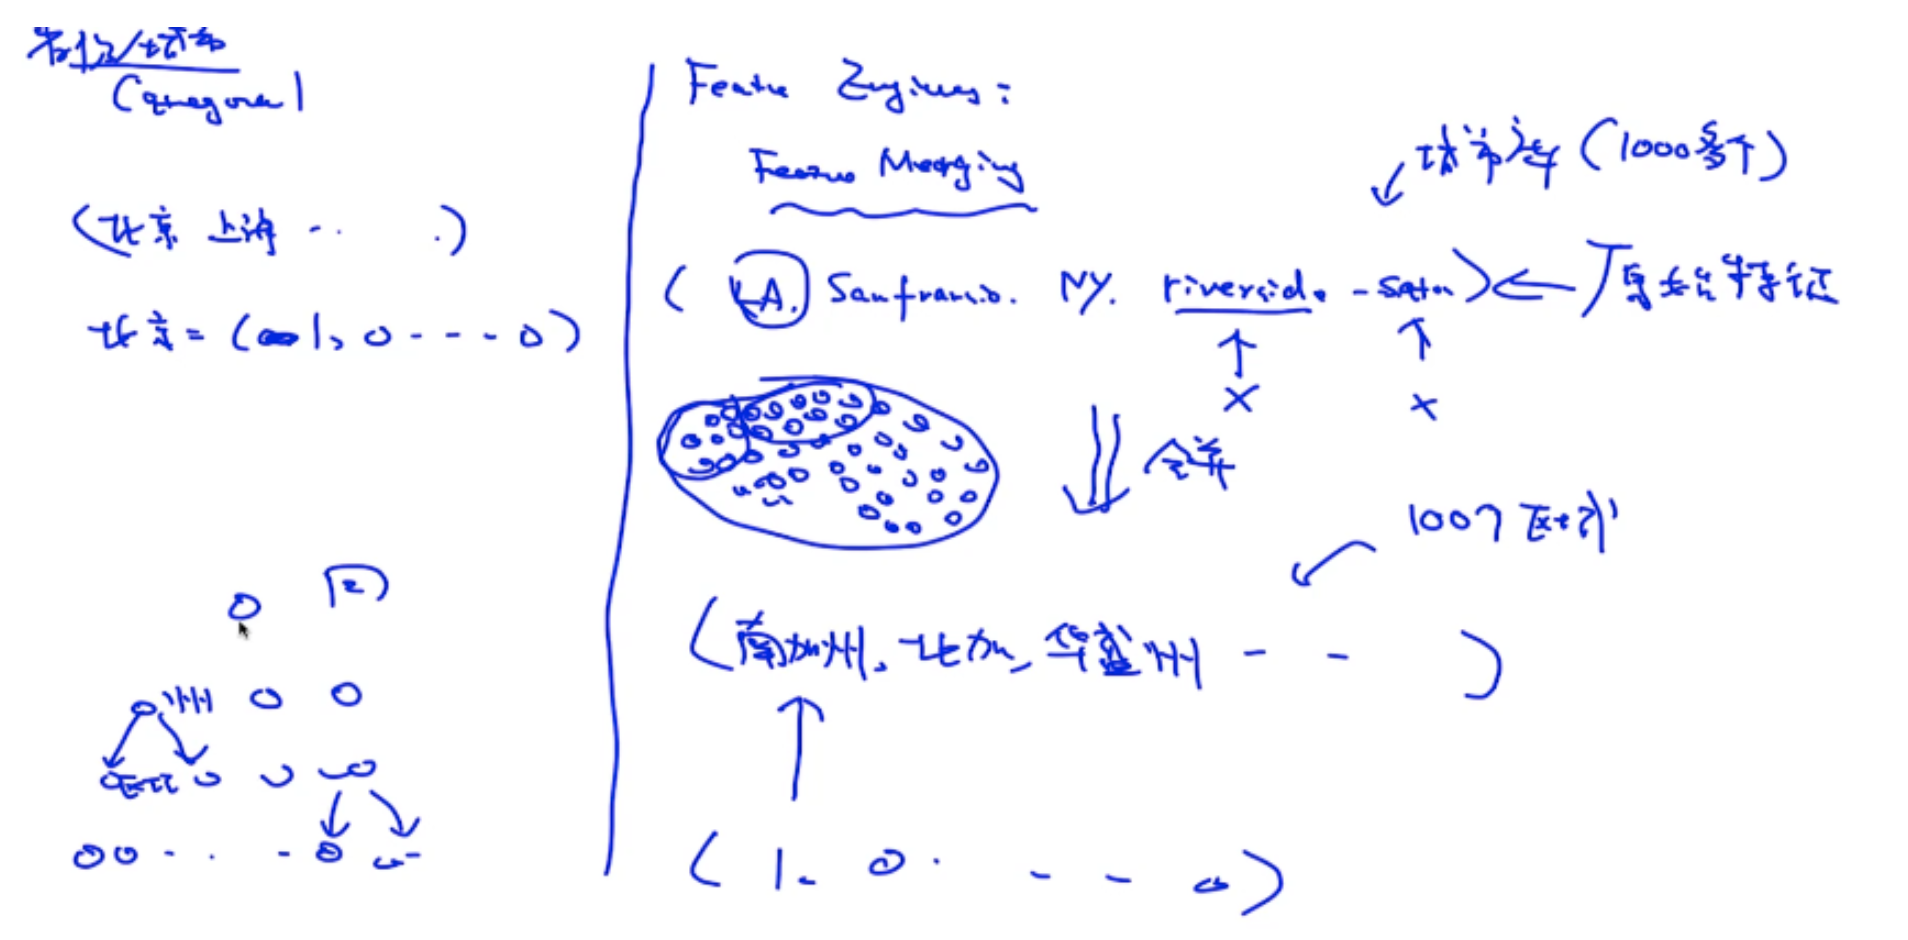 省份/城市
Categorical
(北京 上海 .. .)
北京 = (1, 0 - - - 0)
州
Feature Engineering:
Feature Merging
城市库 (1000多个)
( LA. Sanfrancisco. NY. riverside - - )
原始特征
合并
100个 区域
(南加州, 北加, 华盛州 - - )
( 1. 0 . - - 0 )